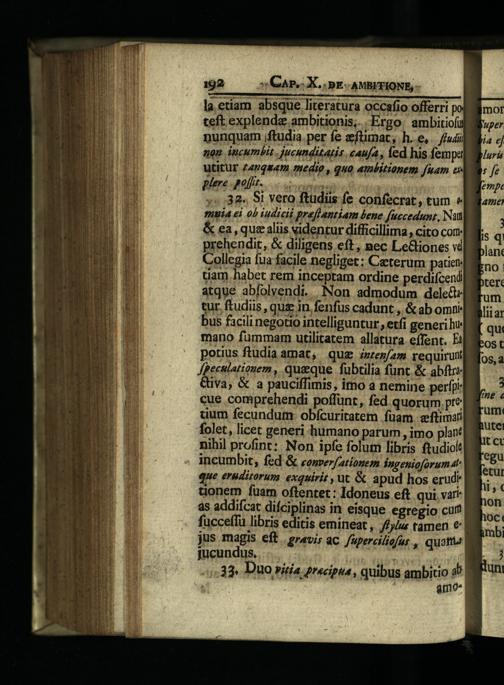 192 CAP. X. DE AMBITIONE,
la etiam absque literatura occasio offerri po-
test explendæ ambitionis. Ergo ambitiosus
nunquam studia per se æstimat, h. e. studiis
non incumbit jucunditatis causa, sed his semper
utitur tanquam medio, quo ambitionem suam ex-
plere possit.
32. Si vero studiis se consecrat, tum o-
mnia ei ob iudicii præstantiam bene succedunt. Nam
& ea, quæ aliis videntur difficillima, cito com-
prehendit, & diligens est, nec Lectiones vel
Collegia sua facile negliget: Cæterum patien-
tiam habet rem inceptam ordine perdiscendi
atque absolvendi. Non admodum delecta-
tur studiis, quæ in sensus cadunt, & ab omni-
bus facili negotio intelliguntur, etsi generi hu-
mano summam utilitatem allatura essent. Ea
potius studia amat, quæ intensam requirunt
speculationem, quæque subtilia sunt & abstra-
ctiva, & a paucissimis, imo a nemine perspi-
cue comprehendi possunt, sed quorum pre-
tium secundum obscuritatem suam æstimari
solet, licet generi humano parum, imo plane
nihil prosint: Non ipse solum libris studiose
incumbit, sed & conversationem ingeniosorum at-
que eruditorum exquirit, ut & apud hos erudi-
tionem suam ostentet: Idoneus est qui vari-
as addiscat disciplinas in eisque egregio cum
successu libris editis emineat, stylus tamen e-
jus magis est gravis ac superciliosus, quam
jucundus.
33. Duo vitia præcipua, quibus ambitio ab
amo-
amor
Super
bia es
pluri
os se
sempe
tamen
lis q
plane
gno
ptere
rum
alii a
( que
eos t
fos, a
sine
rum
autem
ut cu
regu
setur
hi, c
non
hoc
ambi
dunt